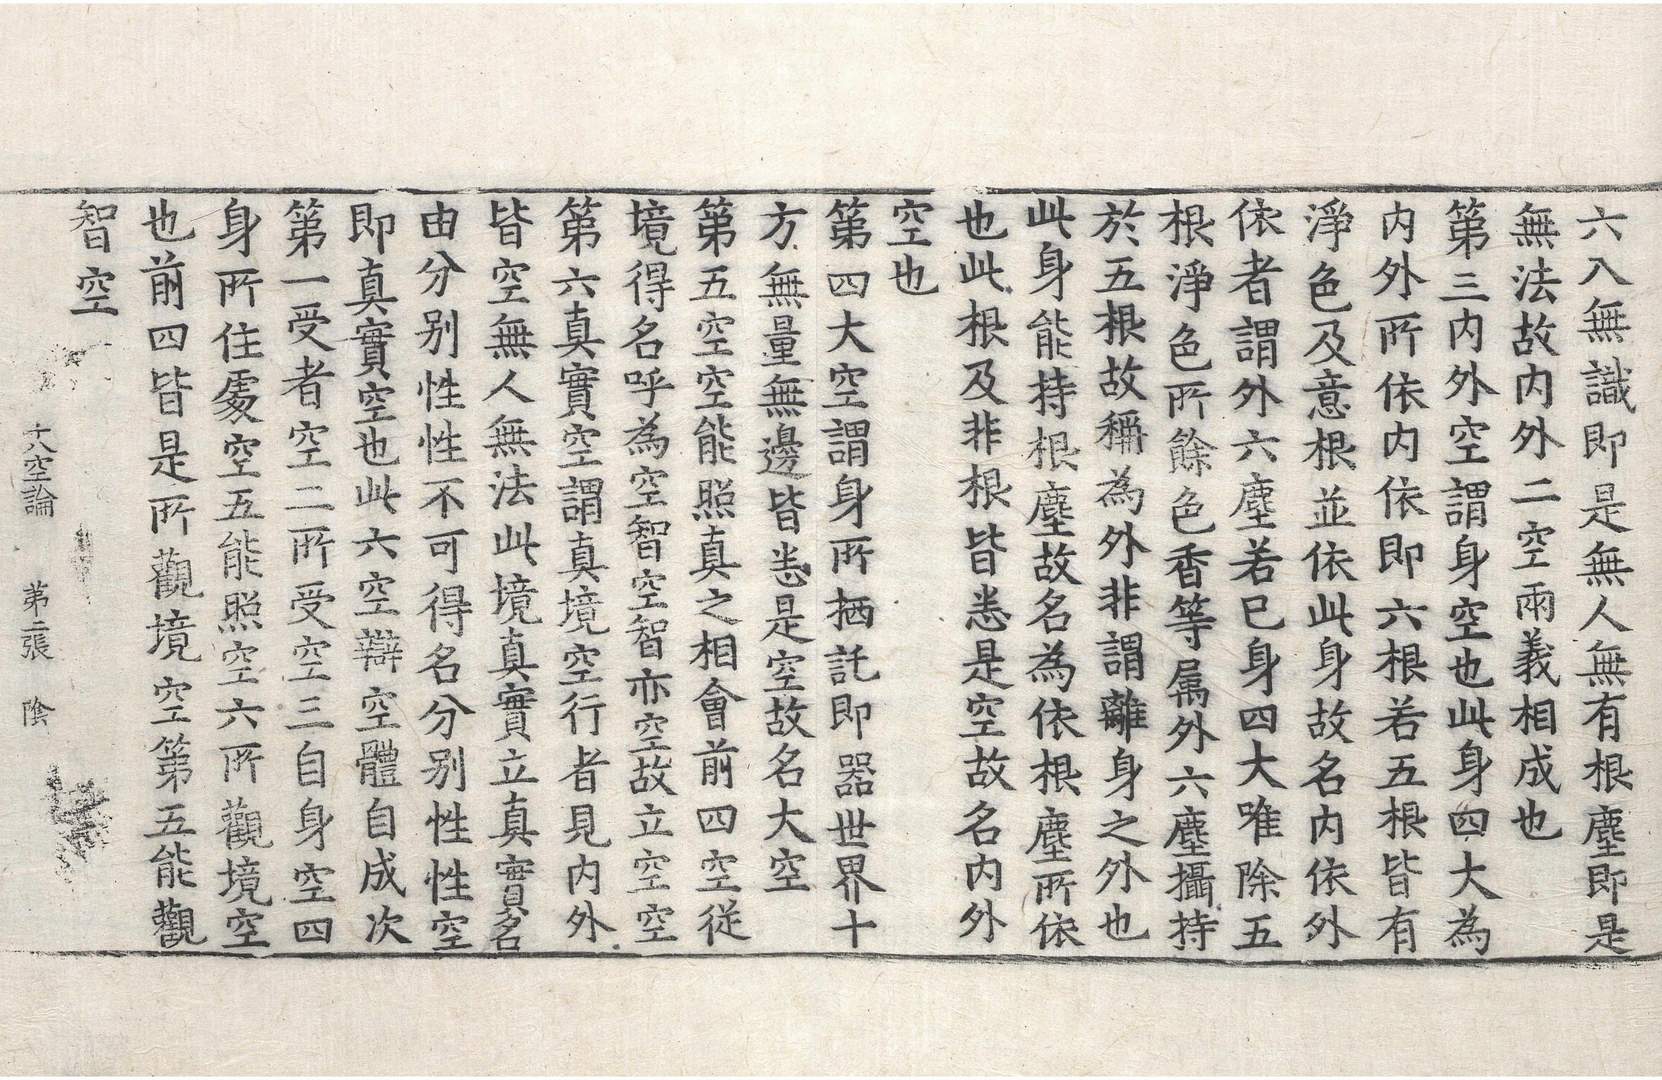 六入無識即是無人無有根塵即是
無法故内外二空兩義相成也
第三内外空謂身空也此身四大為
内外所依内依即六根若五根皆有
淨色及意根並依此身故名内依外
依者謂外六塵若已身四大唯除五
根淨色所餘色香等属外六塵攝持
於五根故稱為外非謂離身之外也
此身能持根塵故名為依根塵所依
也此根及非根皆悉是空故名内外
空也
第四大空謂身所栖託即器世界十
方無量無邊皆悉是空故名大空
第五空空能照真之相會前四空從
境得名呼為空智空智亦空故立空空
第六真實空謂真境空行者見内外
皆空無人無法此境真實立真實名
由分别性性不可得名分别性性空
即真實空也此六空辯空體自成次
第一受者空二所受空三自身空四
身所住處空五能照空六所觀境空
也前四皆是所觀境空第五能觀
智空
十八空論 第二張 陰